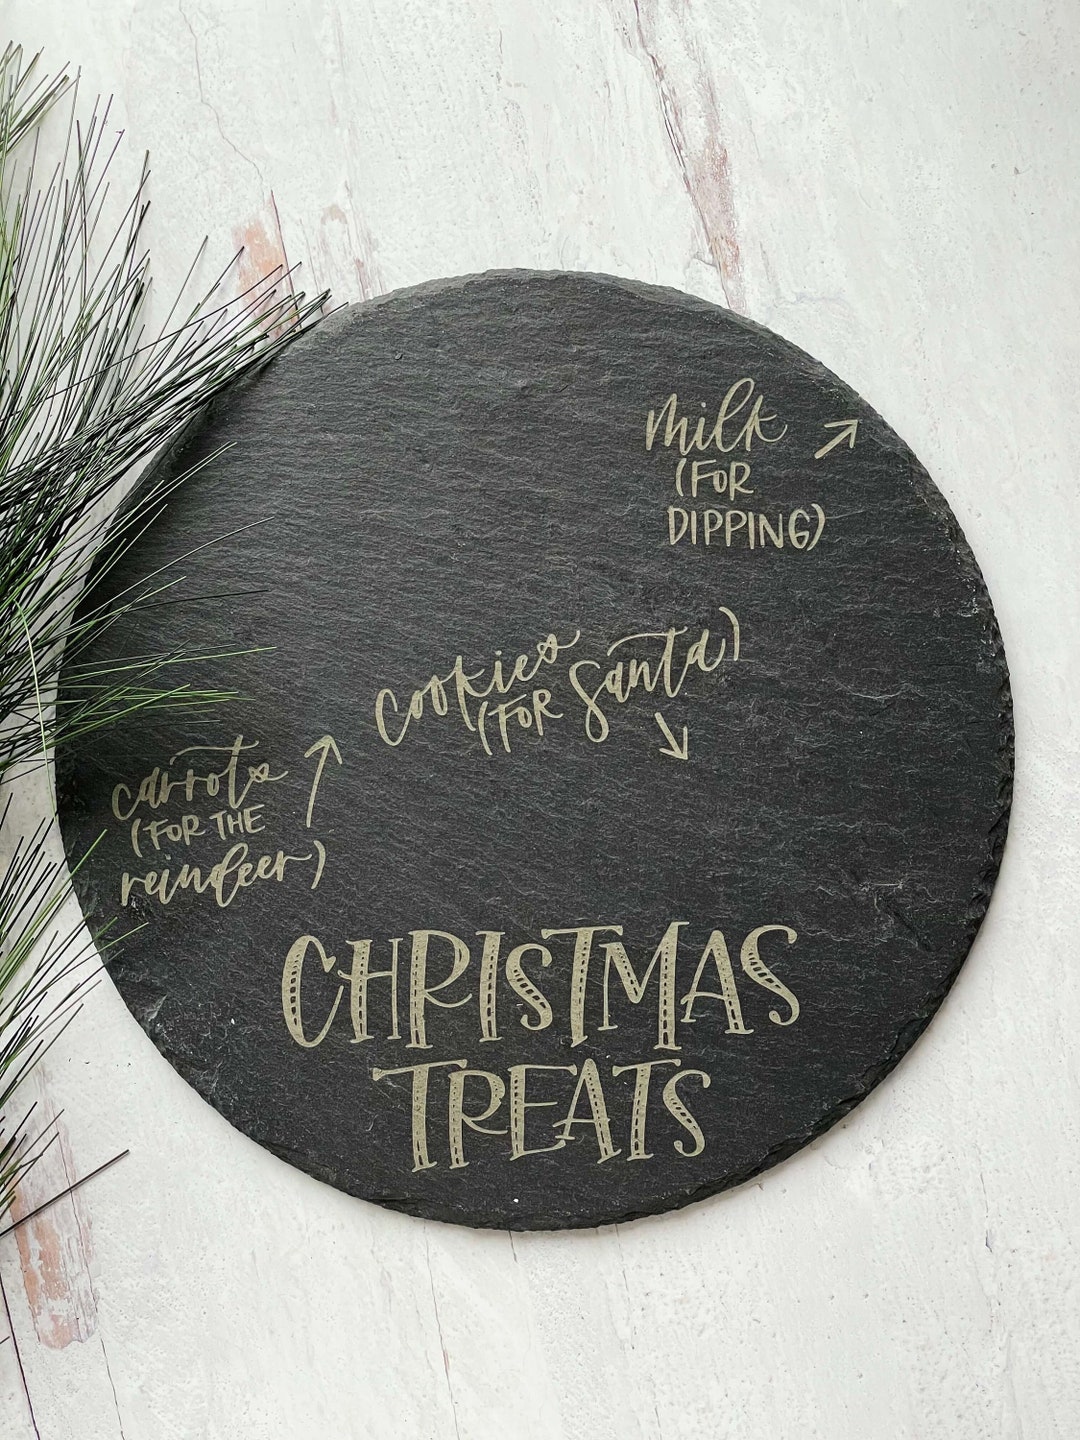 milk
(FOR
DIPPING)
cookies
(FOR Santa)
carrots
(FOR THE
reindeer)
CHRISTMAS
TREATS